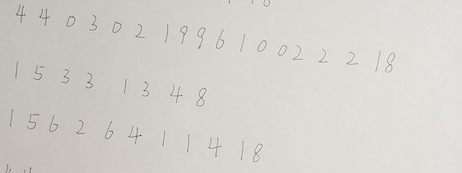 4 4 0 3 0 2 1 9 9 6 1 0 0 2 2 2 18
1 5 3 3 1 3 4 8
1 5 6 2 6 4 1 1 4 18